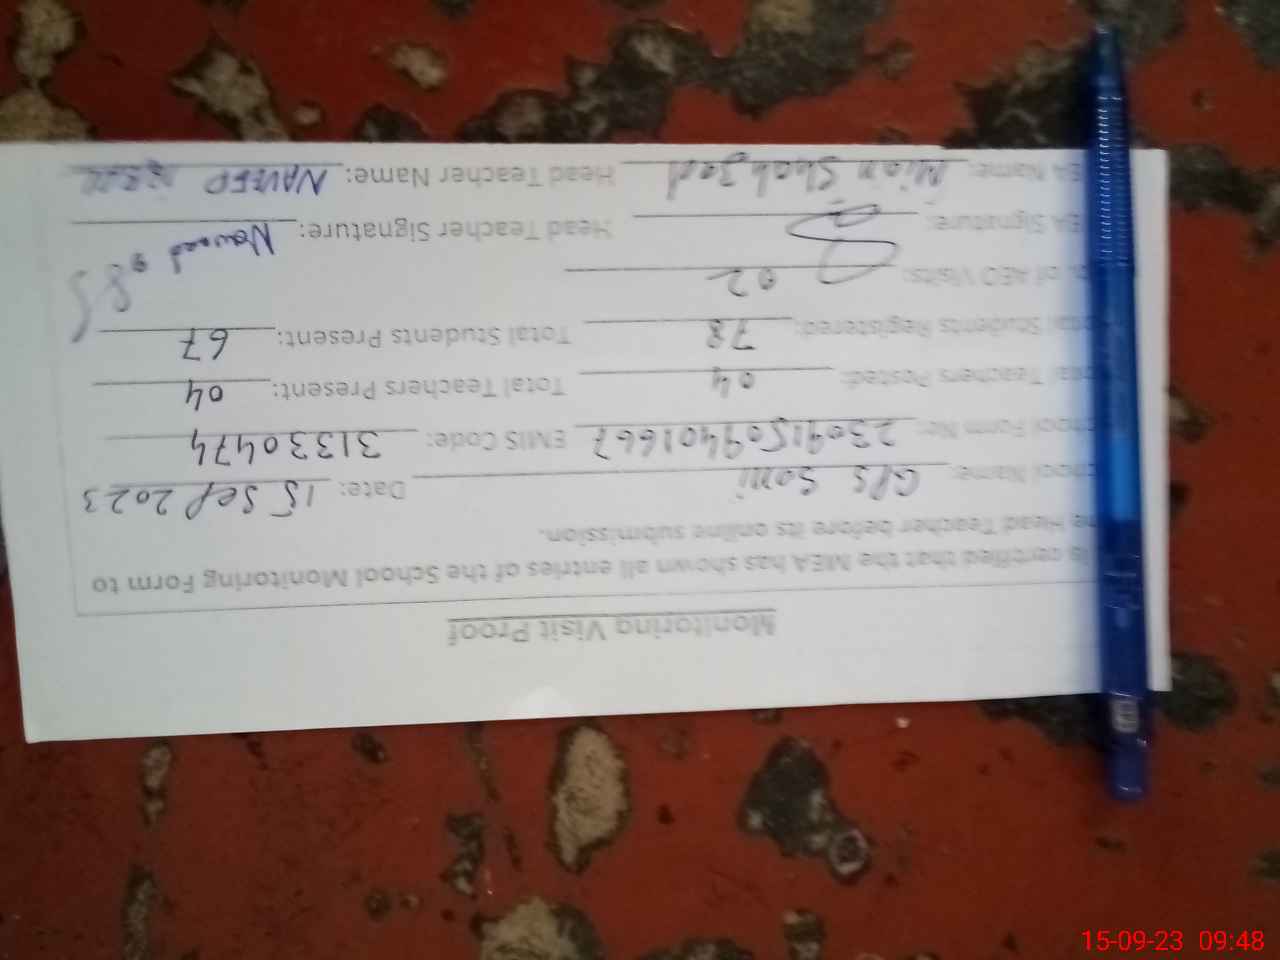 Monitoring Visit Proof
is certified that the MEA has shown all entries of the School Monitoring Form to
Head Teacher before its online submission.
Name: GPS Somi Date: 15 Sep 2023
Form No: 23091509401667 EMIS Code: 31330474
Teachers Posted: 04 Total Teachers Present: 04
Students Registered: 78 Total Students Present: 67
of AEO Visits: 02
EA Signature: Head Teacher Signature: Naveed
EA Name: Mian Shahzad Head Teacher Name: NAVEED
15-09-23 09:48